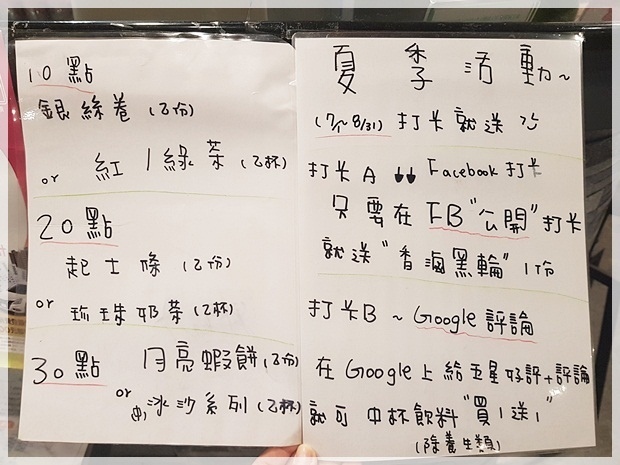 10 點
銀絲卷 (乙份)
or 紅 / 綠茶 (乙杯)
20 點
起士條 (乙份)
or 珍珠奶茶 (乙杯)
30 點 月亮蝦餅 (乙份)
or 中冰沙系列 (乙杯)
夏季活動~
(7/1~8/31) 打卡就送
打卡A ↓↓ Facebook 打卡
只要在 FB "公開" 打卡
就送 "香滷黑輪" 1份
打卡B ~ Google 評論
在 Google 上給五星好評+評論
就可中杯飲料 "買1送1"
(除養生類)